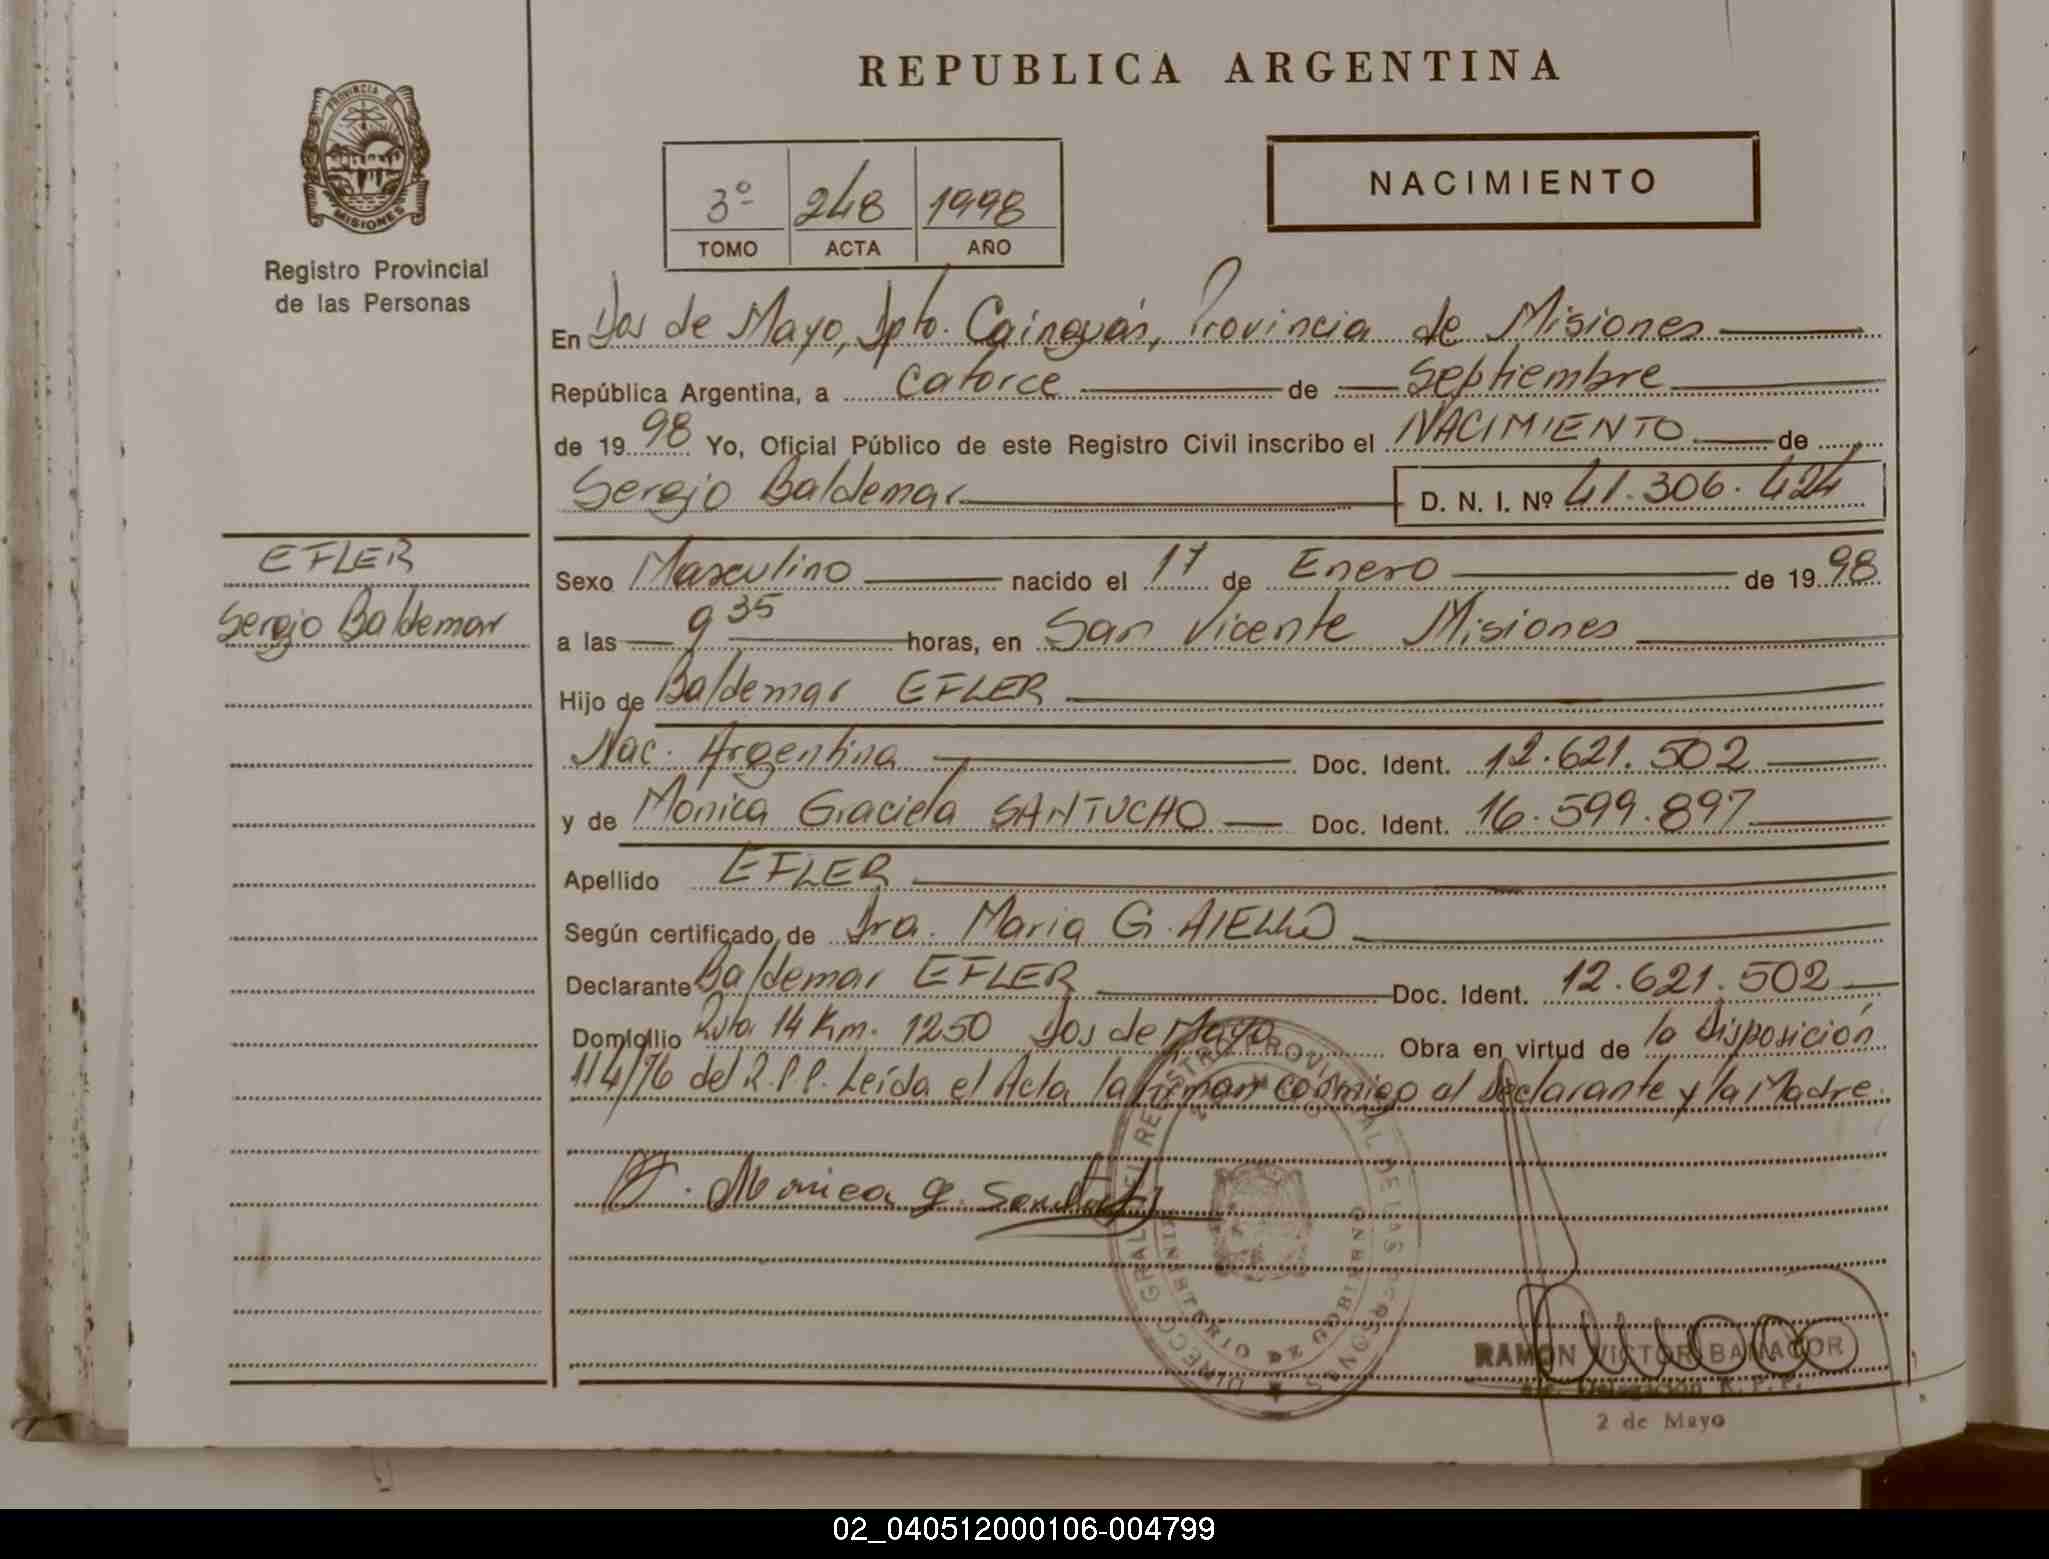 REPUBLICA ARGENTINA
PROVINCIA DE
MISIONES
Registro Provincial
de las Personas
3º 248 1998
TOMO ACTA AÑO
NACIMIENTO
En Dos de Mayo, Dpto. Cainguás, Provincia de Misiones
República Argentina, a catorce de Septiembre
de 1998 Yo, Oficial Público de este Registro Civil inscribo el NACIMIENTO de
Sergio Baldemar D. N. I. Nº 41.306.424
EFLER
Sergio Baldemar
Sexo Masculino nacido el 17 de Enero de 1998
a las 9 35 horas, en San Vicente Misiones
Hijo de Baldemar EFLER
Nac. Argentina Doc. Ident. 12.621.502
y de Mónica Graciela SANTUCHO Doc. Ident. 16.599.897
Apellido EFLER
Según certificado de Dra. Maria G. AIELLO
Declarante Baldemar EFLER Doc. Ident. 12.621.502
Domicilio Ruta 14 Km. 1250 Dos de Mayo Obra en virtud de la Disposición
114/76 del R.P.P. Leída el Acta la firman conmigo el Declarante y la Madre.
Monica G. Santucho
DIRECC. GRAL. DEL REGISTRO PROVINCIAL DE LAS PERSONAS
MINISTERIO DE GOBIERNO
RAMON VICTOR
Delegación R. P. P.
2 de Mayo
02_040512000106-004799